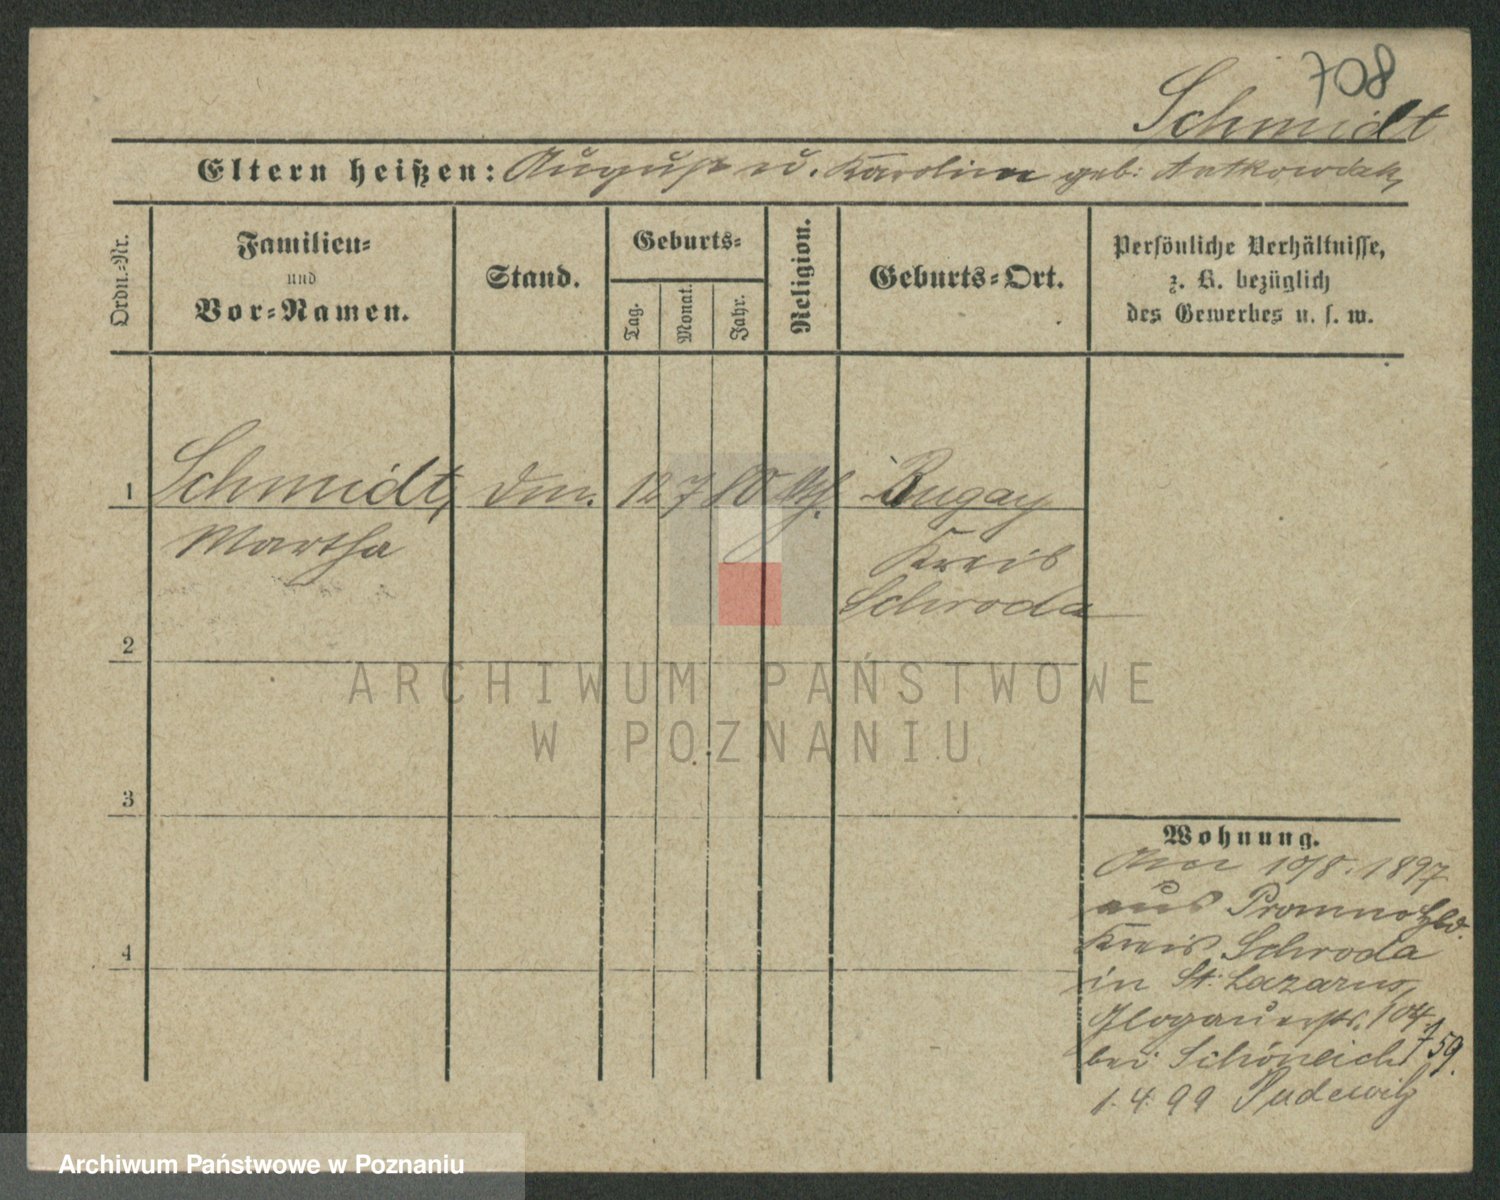 708
Schmidt
Eltern heißen: August u. Karoline geb: Antkowiak,
Ordn.-Nr.
Familien-
und
Vor-Namen.
Stand.
Geburts-
Tag.
Monat.
Jahr.
Religion.
Geburts-Ort.
Persönliche Verhältnisse,
z. B. bezüglich
des Gewerbes u. s. w.
1 Schmidt, 12 7 80 Bugay
Martha
Kreis
Schroda
2
ARCHIWUM PAŃSTWOWE
W POZNANIU
3
Wohnung.
10/8. 1897
aus
Kreis Schroda
in St. Lazarus,
Glogauerstr. 104
bei Schöneich 159.
1. 4. 99 Pudewitz
4
Archiwum Państwowe w Poznaniu